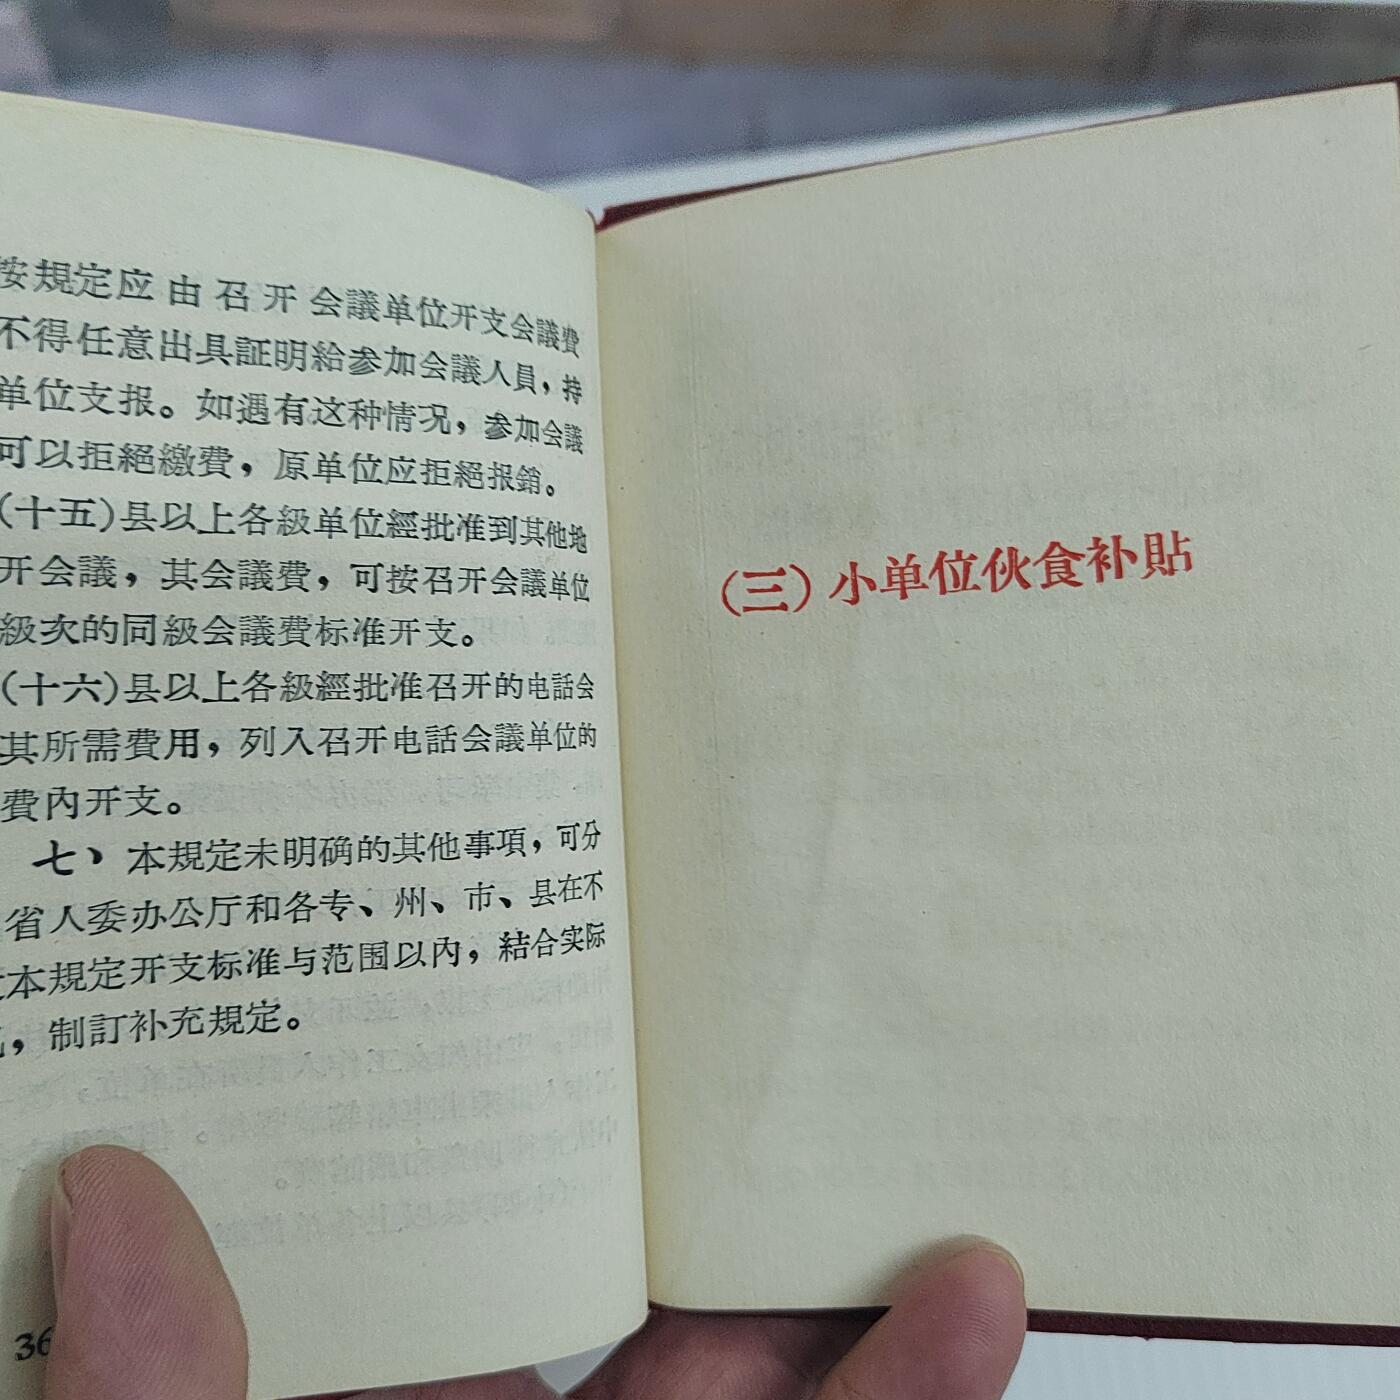 按規定应由召开会議单位开支会議費
不得任意出具証明給参加会議人員，持
单位支报。如遇有这种情况，参加会議
可以拒絕繳費，原单位应拒絕报銷。
（十五）县以上各級单位經批准到其他地
开会議，其会議費，可按召开会議单位
級次的同級会議費标准开支。
（十六）县以上各級經批准召开的电話会
其所需費用，列入召开电話会議单位的
費內开支。
七、本規定未明确的其他事項，可分
省人委办公厅和各专、州、市、县在不
本規定开支标准与范围以內，結合实际
，制訂补充規定。
36
（三）小单位伙食补貼